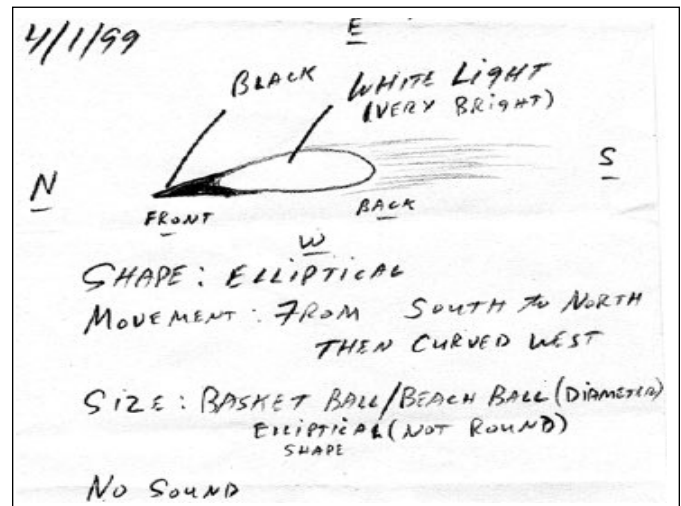 4/1/99
E
BLACK
WHITE LIGHT
(VERY BRIGHT)
S
N
FRONT
BACK
W
SHAPE: ELLIPTICAL
MOVEMENT: FROM SOUTH TO NORTH
THEN CURVED WEST
SIZE: BASKET BALL/BEACH BALL (DIAMETER)
ELLIPTICAL (NOT ROUND)
SHAPE
NO SOUND